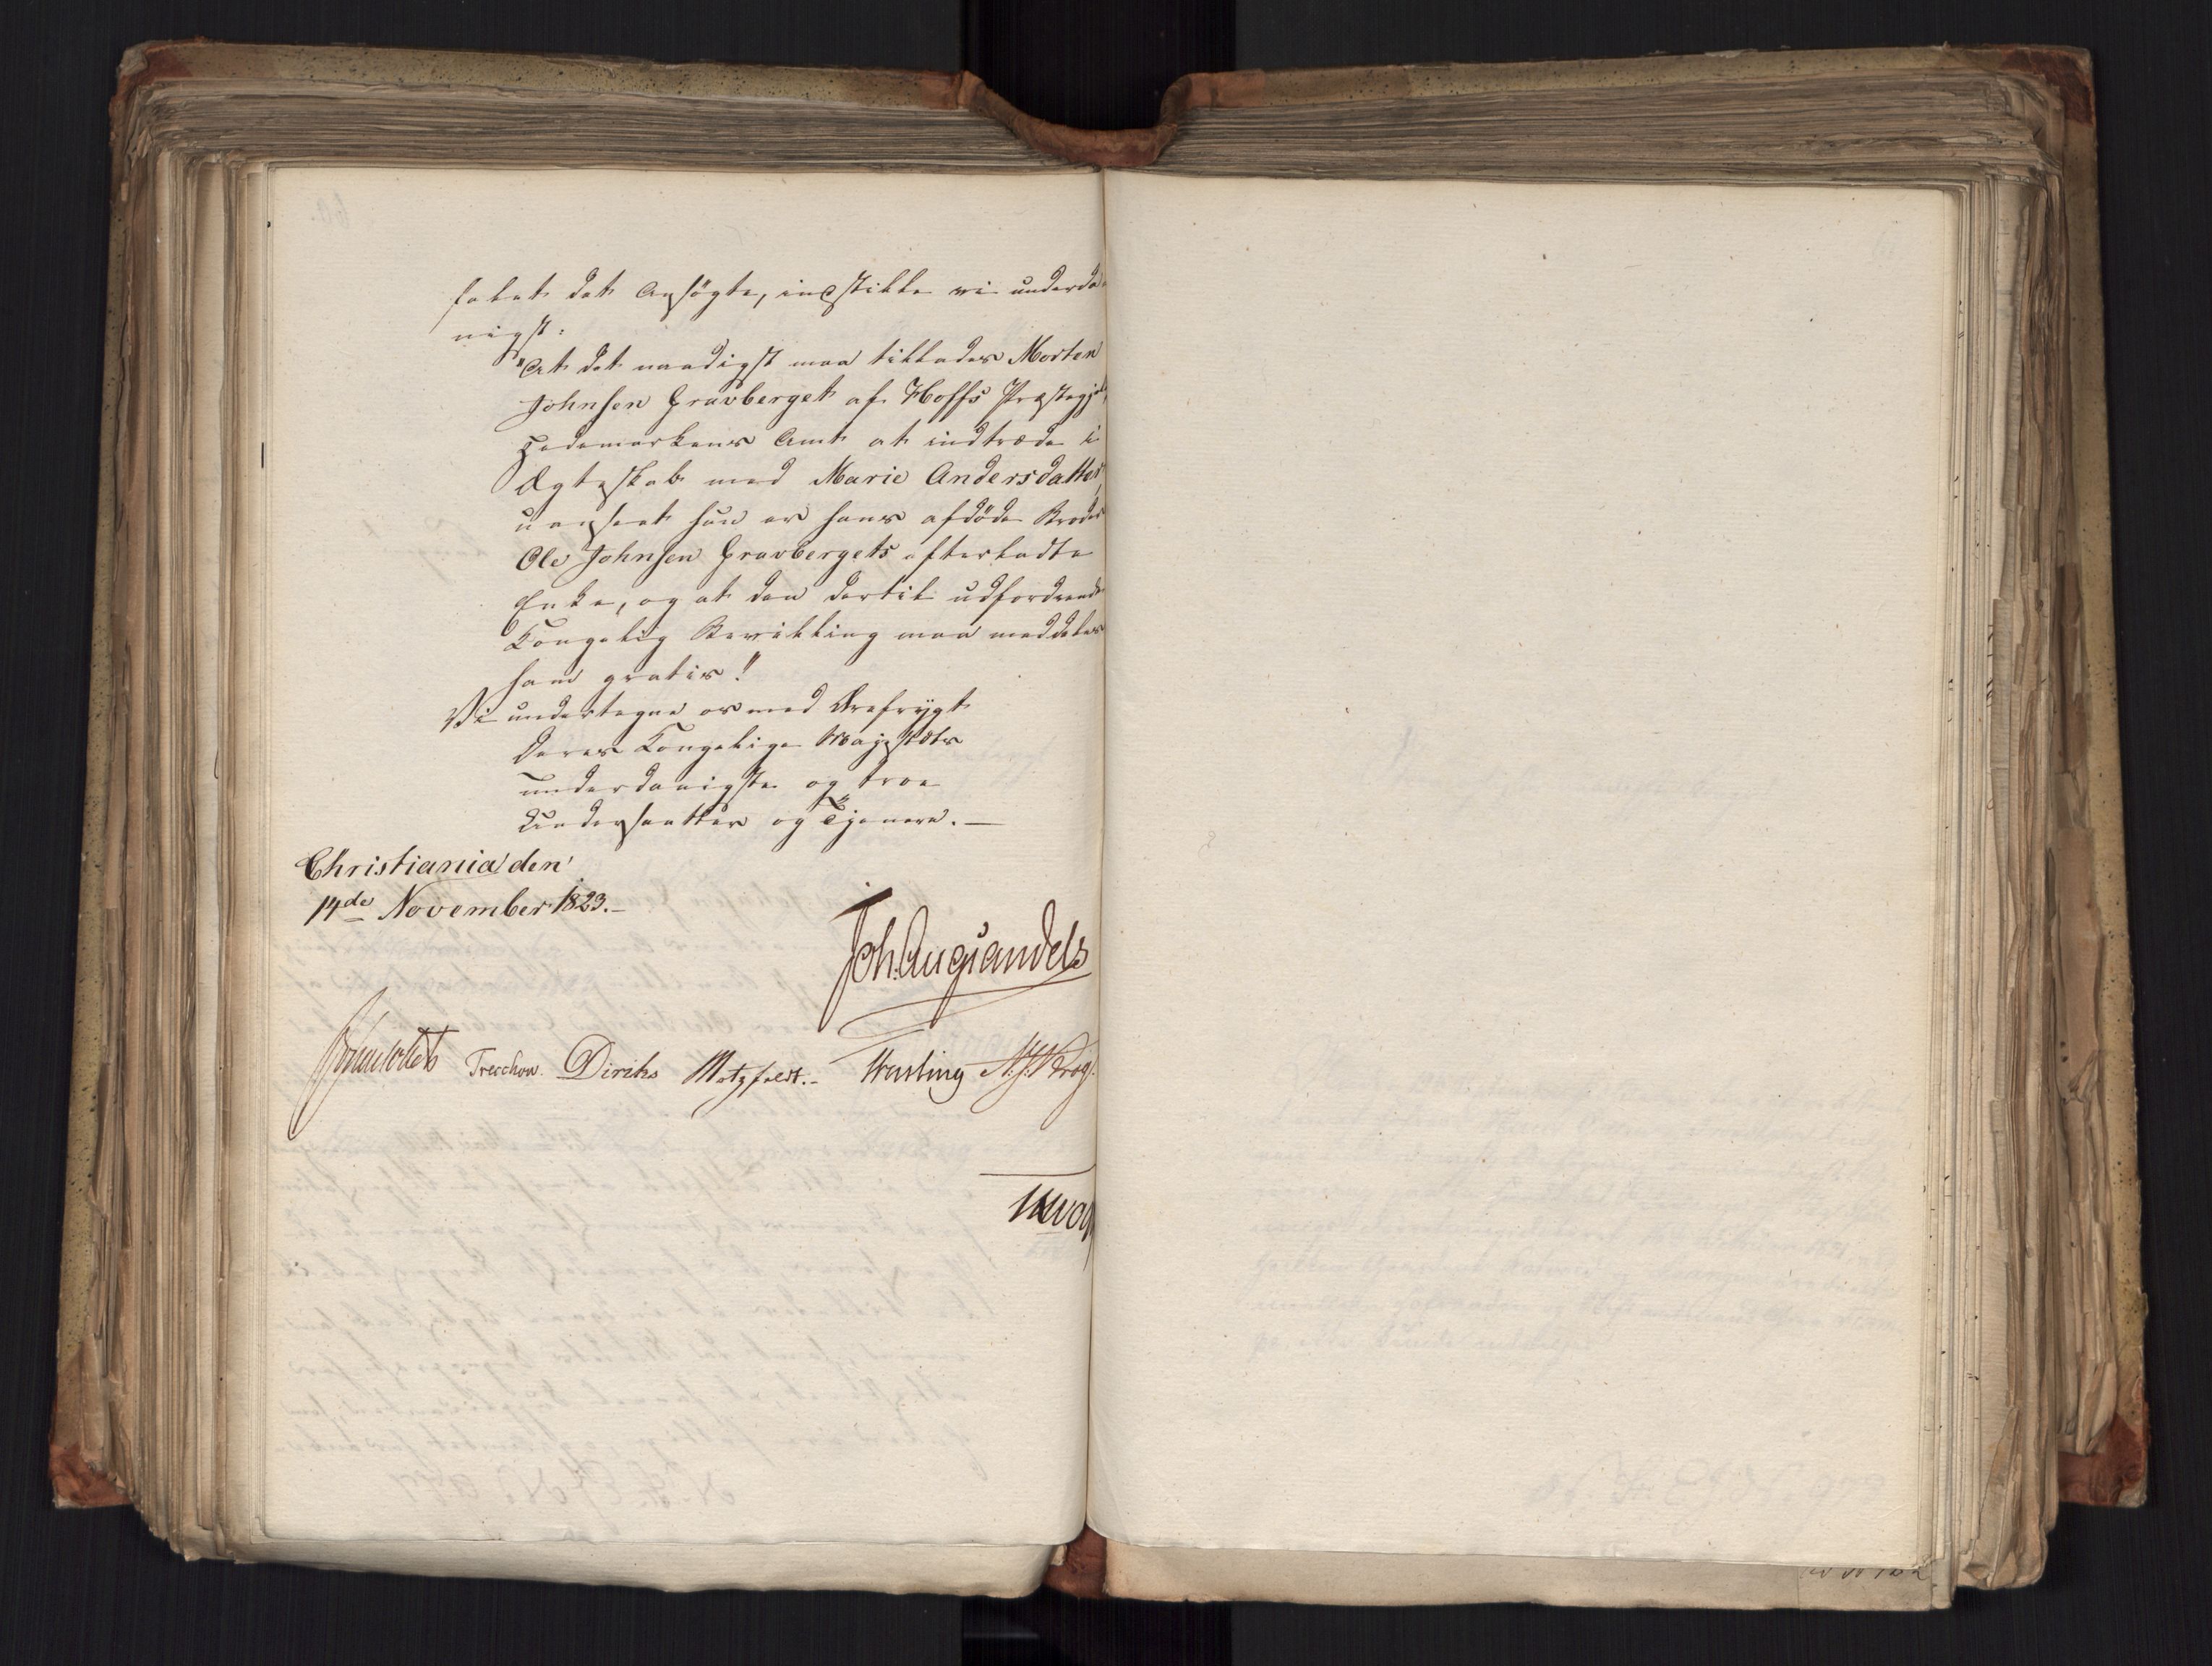 falet det Ansøgte, indstille vi underda-
nigst:
"At det naadigst maa tillades Morten
Johnsen Gravberget af Hoffs Præstegjeld,
Hedemarkens Amt at indtræde i
Ægteskab med Marie Andersdatter,
uanseet hun er hans afdøde Broder
Ole Johnsen Gravbergets efterladte
Enke, og at den dertil udfordrende
Kongelig Bevilling maa meddeles
ham gratis."
Vi undertegne os med Ærefrygt
Deres Kongelige Majestæts
underdanigste og troe
Undersaatter og Tjenere.—
Christiania den
14de November 1823.—
Joh. Aug Sandels
Sommerhielm Treschow. Diriks Motzfeldt.- Fasting N. J. Krog.
Vogt